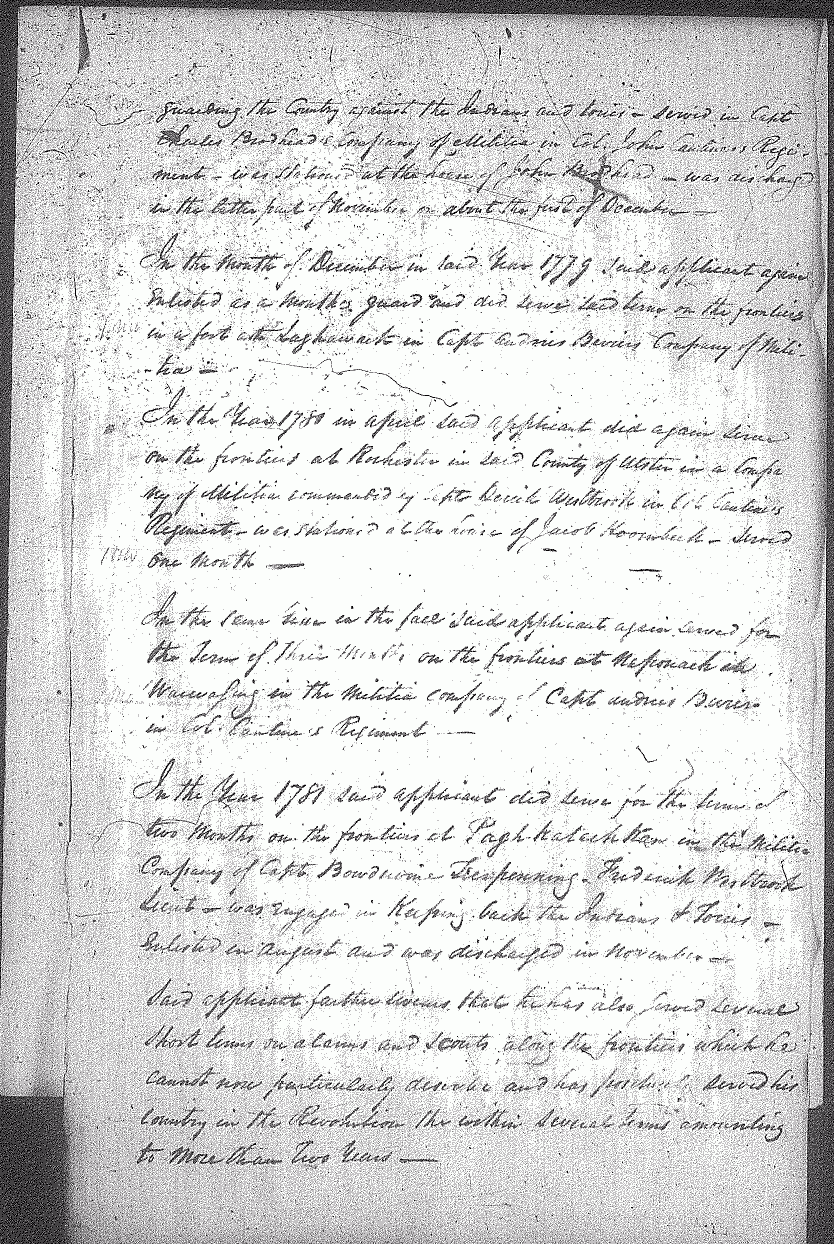 guarding the Country against the Indians and tories - served in Capt
Charles Brodheads Company of Militia in Col. John Cantines Regi-
ment - was stationed at the house of John Brodhead - was discharged
in the latter part of November or about the first of December —
In the Month of December in said Year 1779 said applicant again
Enlisted as a months guard and did serve said term on the frontiers
in a fort at Laghawack in Capt Andries Beviers Company of Mili-
-tia —
In the Year 1780 in april said applicant did again serve
on the frontiers at Rochester in said County of Ulster in a Compa
ny of Militia commanded by Capt Derick Westbrook in Col. Cantines
Regiment - was stationed at the house of Jacob Hoornbeck - served
One Month —
In the same Year in the face said applicant again served for
the Term of Three Months on the frontiers at Neponach in
Wawarsing in the Militia company of Capt andries Bevier
in Col. Cantines Regiment —
In the Year 1781 said applicant did serve for the term of
two Months on the frontiers at Paghkatachkan in the Militia
Company of Capt. Bowdewine Terpenning - Frederick Westbrook
Lieut - was engaged in Keeping back the Indians & Tories -
Enlisted in August and was discharged in November —
Said applicant further swears that he has also served several
short terms on alarms and scouts along the frontiers which he
cannot now particularly describe and has positively served his
Country in the Revolution the within several terms amounting
to more than Two Years —